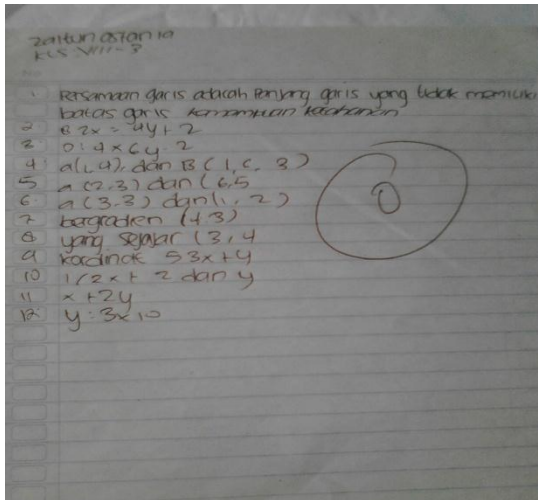 Zaitun astania
KLS VIII-3
1. Persamaan garis adalah Panjang garis yang tidak memiliki
batas garis
2 B 2x = 4y + 2
3 0: 4x6y-2
4 a(1,4), dan B (1, 6, 3)
5 a (2-3) dan (6,5
6 a (3-3) dan (1, 2)
7 bagradien (4.3)
8 yang sejajar (3,4
9 kordinat 53x+4
10 1/2x+ 2 dan y
11 x + 2y
12 y : 3x10
0